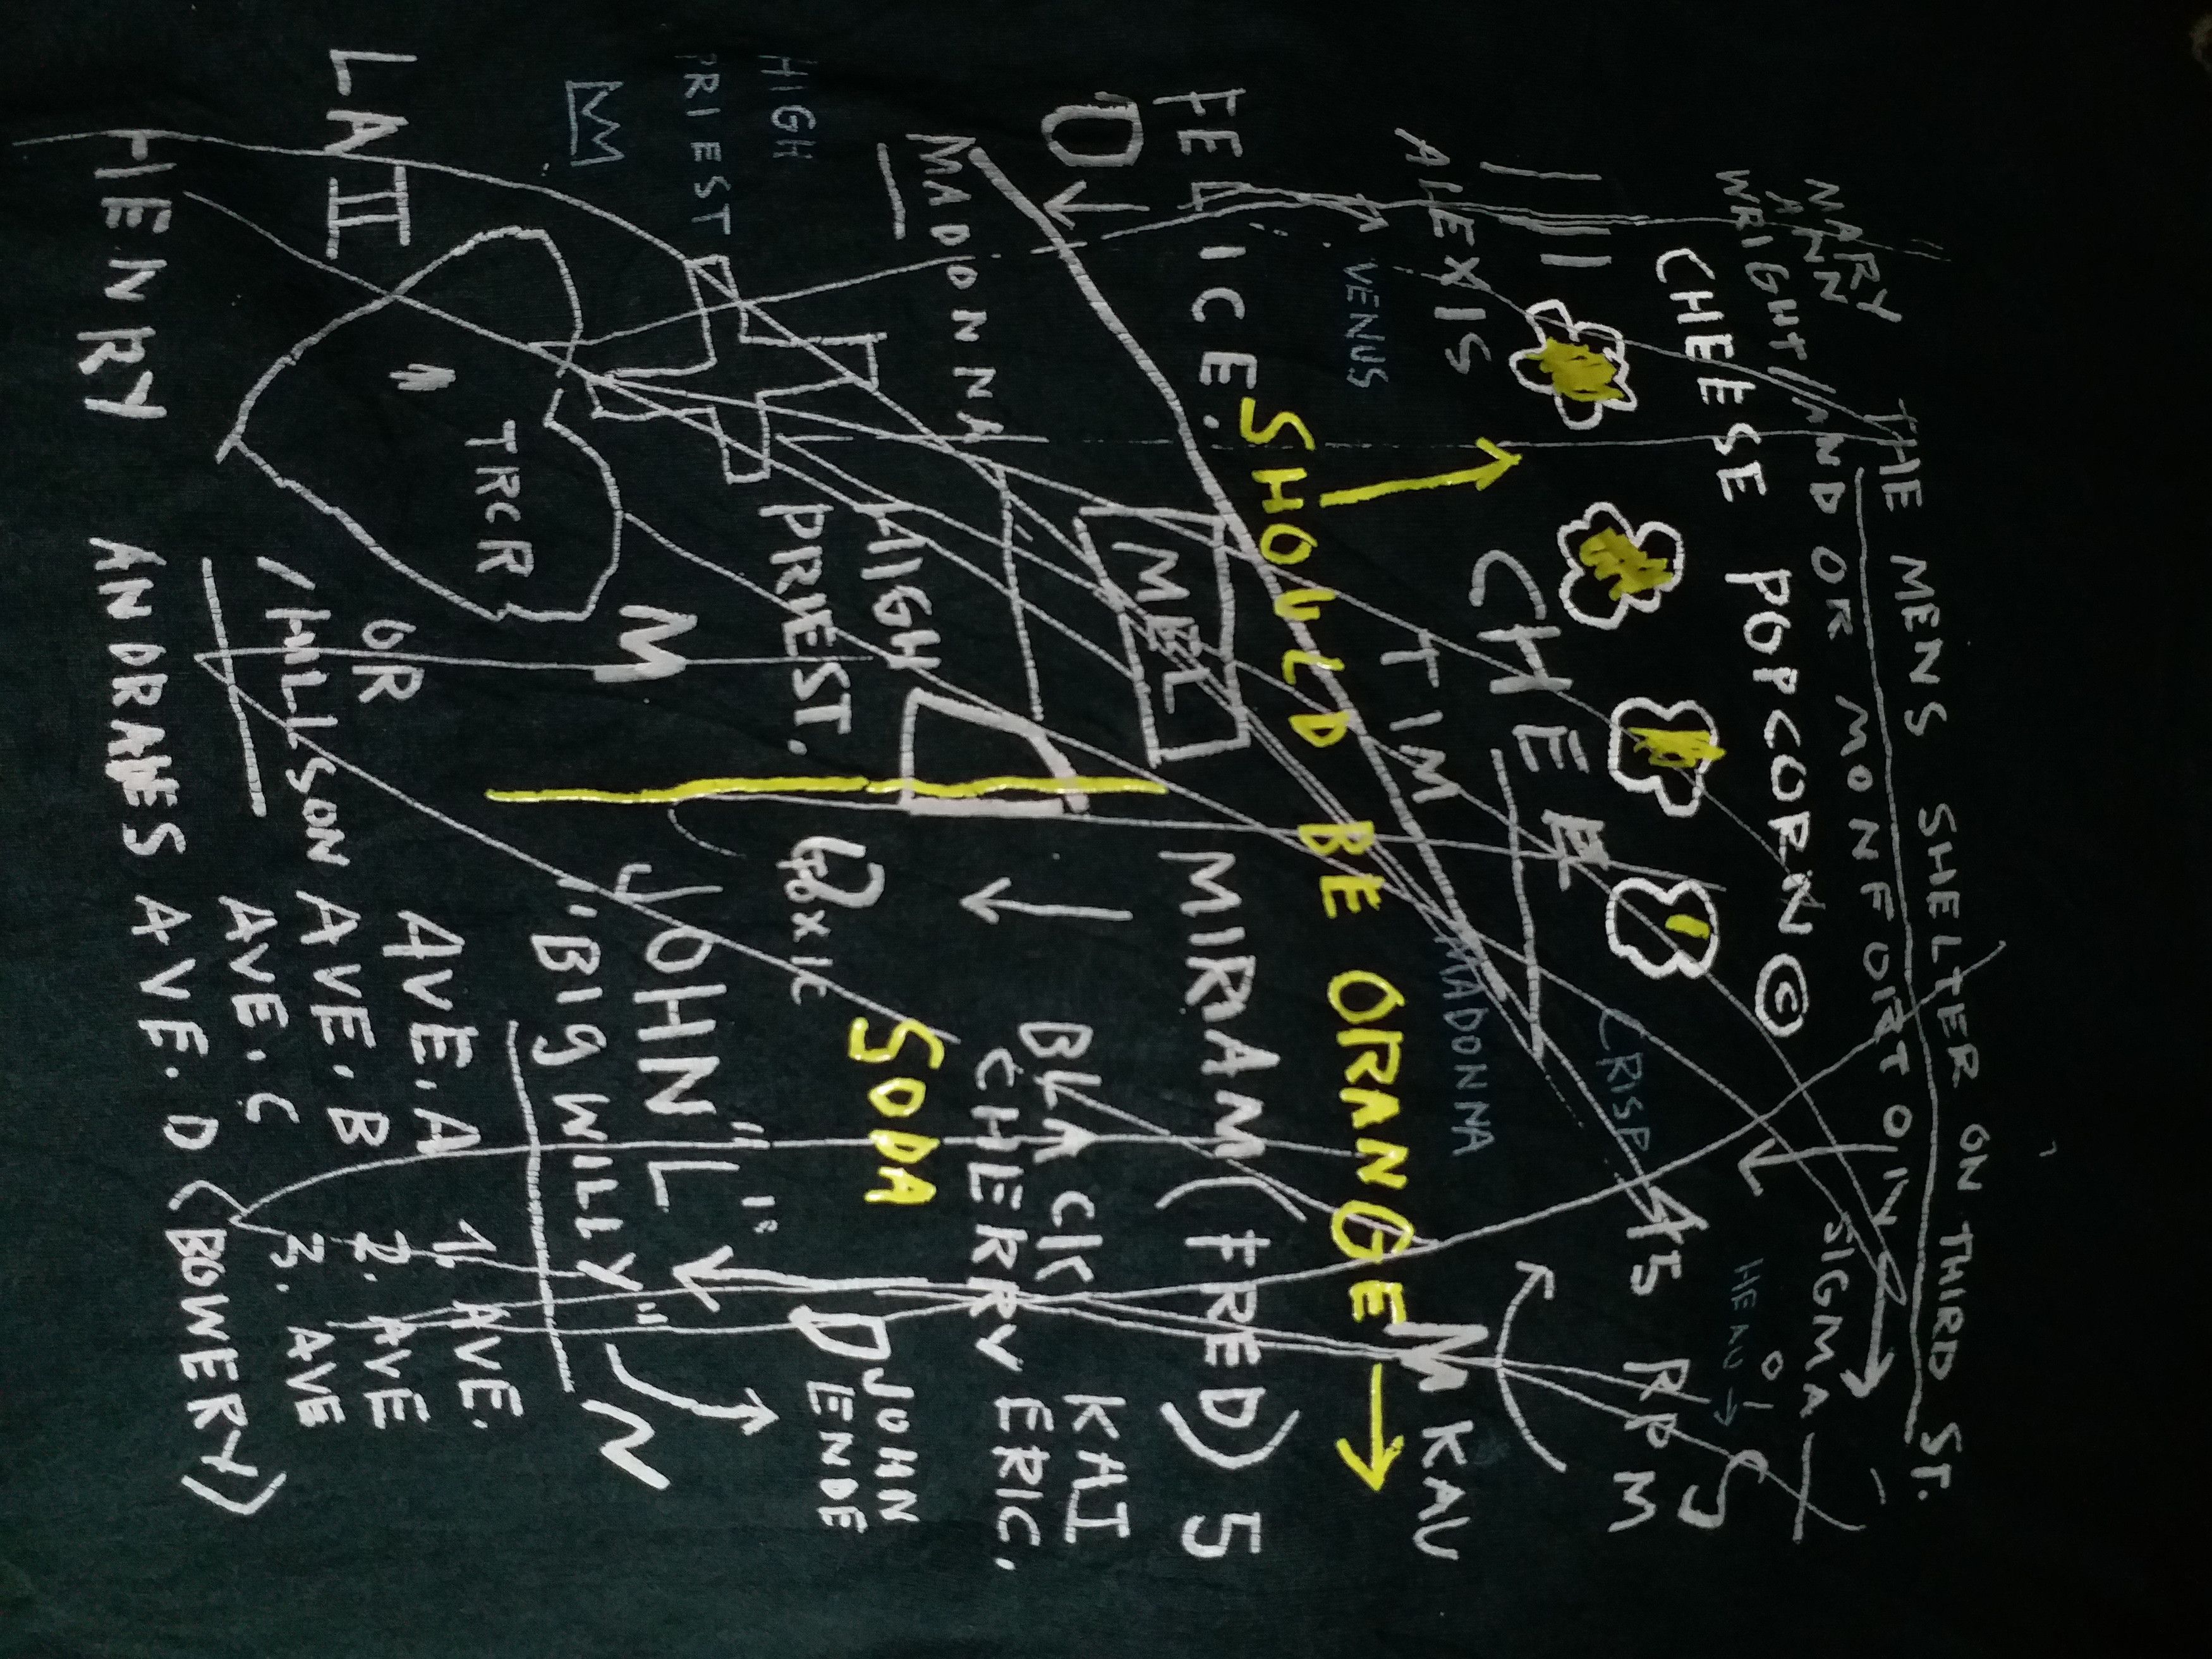 THE MENS SHELTER ON THIRD ST.
MARY
ANN
WRIGHT/AND OR MONFORT OIV
CHEESE POPCORN ©
SIGMA
HEAD →
CRISP
ALEXIS
CHEE
45 RPM
VENUS
TIM
MADONNA
KAV
SHOULD BE ORANGE
FELICE.
MEL
MIRAM (FRED) 5
MADONNA
BLACK
CHERRY
KAI
ERIC.
HIGH
PRIEST
HIGH
PRIEST.
TOXIC
SODA
JOHN
ENDE
"JOHN L"
"BIG WILLY"
M
N
TRCR
LA II
OR
WILLSON
AVE. A
1 AVE.
AVE. B
2. AVE
AVE. C
3. AVE
HENRY
ANDRAES AVE. D (BOWERY)